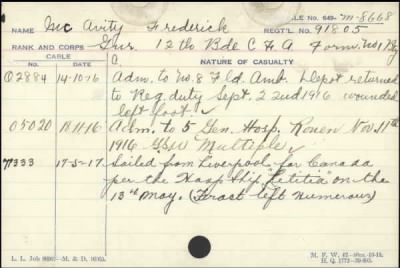 FILE NO. 649- M-8668
NAME McAvity Frederick REGT'L. NO. 91805
RANK AND CORPS Gnr. 12th Bde C F A Form. No 1 Bty
CABLE
NO. DATE NATURE OF CASUALTY
Q2884 14-10-16 Adm. to No. 8 Fld. Amb. Depot returned
to Reg. duty Sept. 22nd 1916 wounded
left foot.
O5020 18-11-16 Adm. to 5 Gen. Hosp. Rouen Nov. 11th
1916 GSW Multiple
77333 17-5-17 Sailed from Liverpool for Canada
per the Hosp. Ship "Letitia" on the
13th May. (Fract left humerous)
L. L. Job
M. F. W.
H. Q.